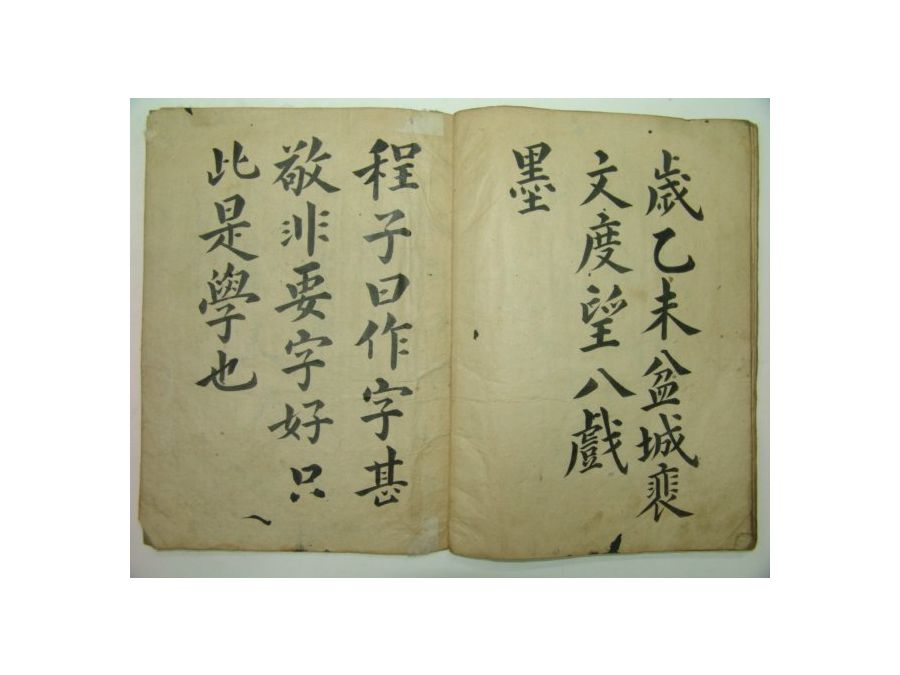 歲乙未盆城裴
文度望八戲
墨
程子曰作字甚
敬非要字好只
此是學也